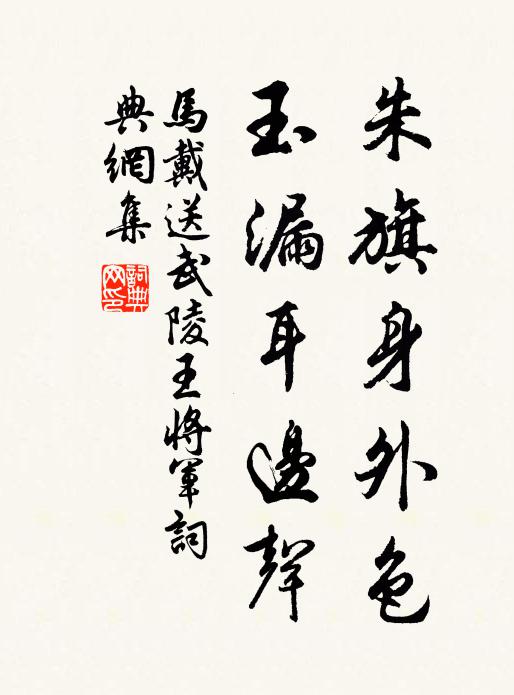 朱旗身外色
玉漏耳邊聲
馬戴送武陵王將軍詞
典網集
詞典
网印